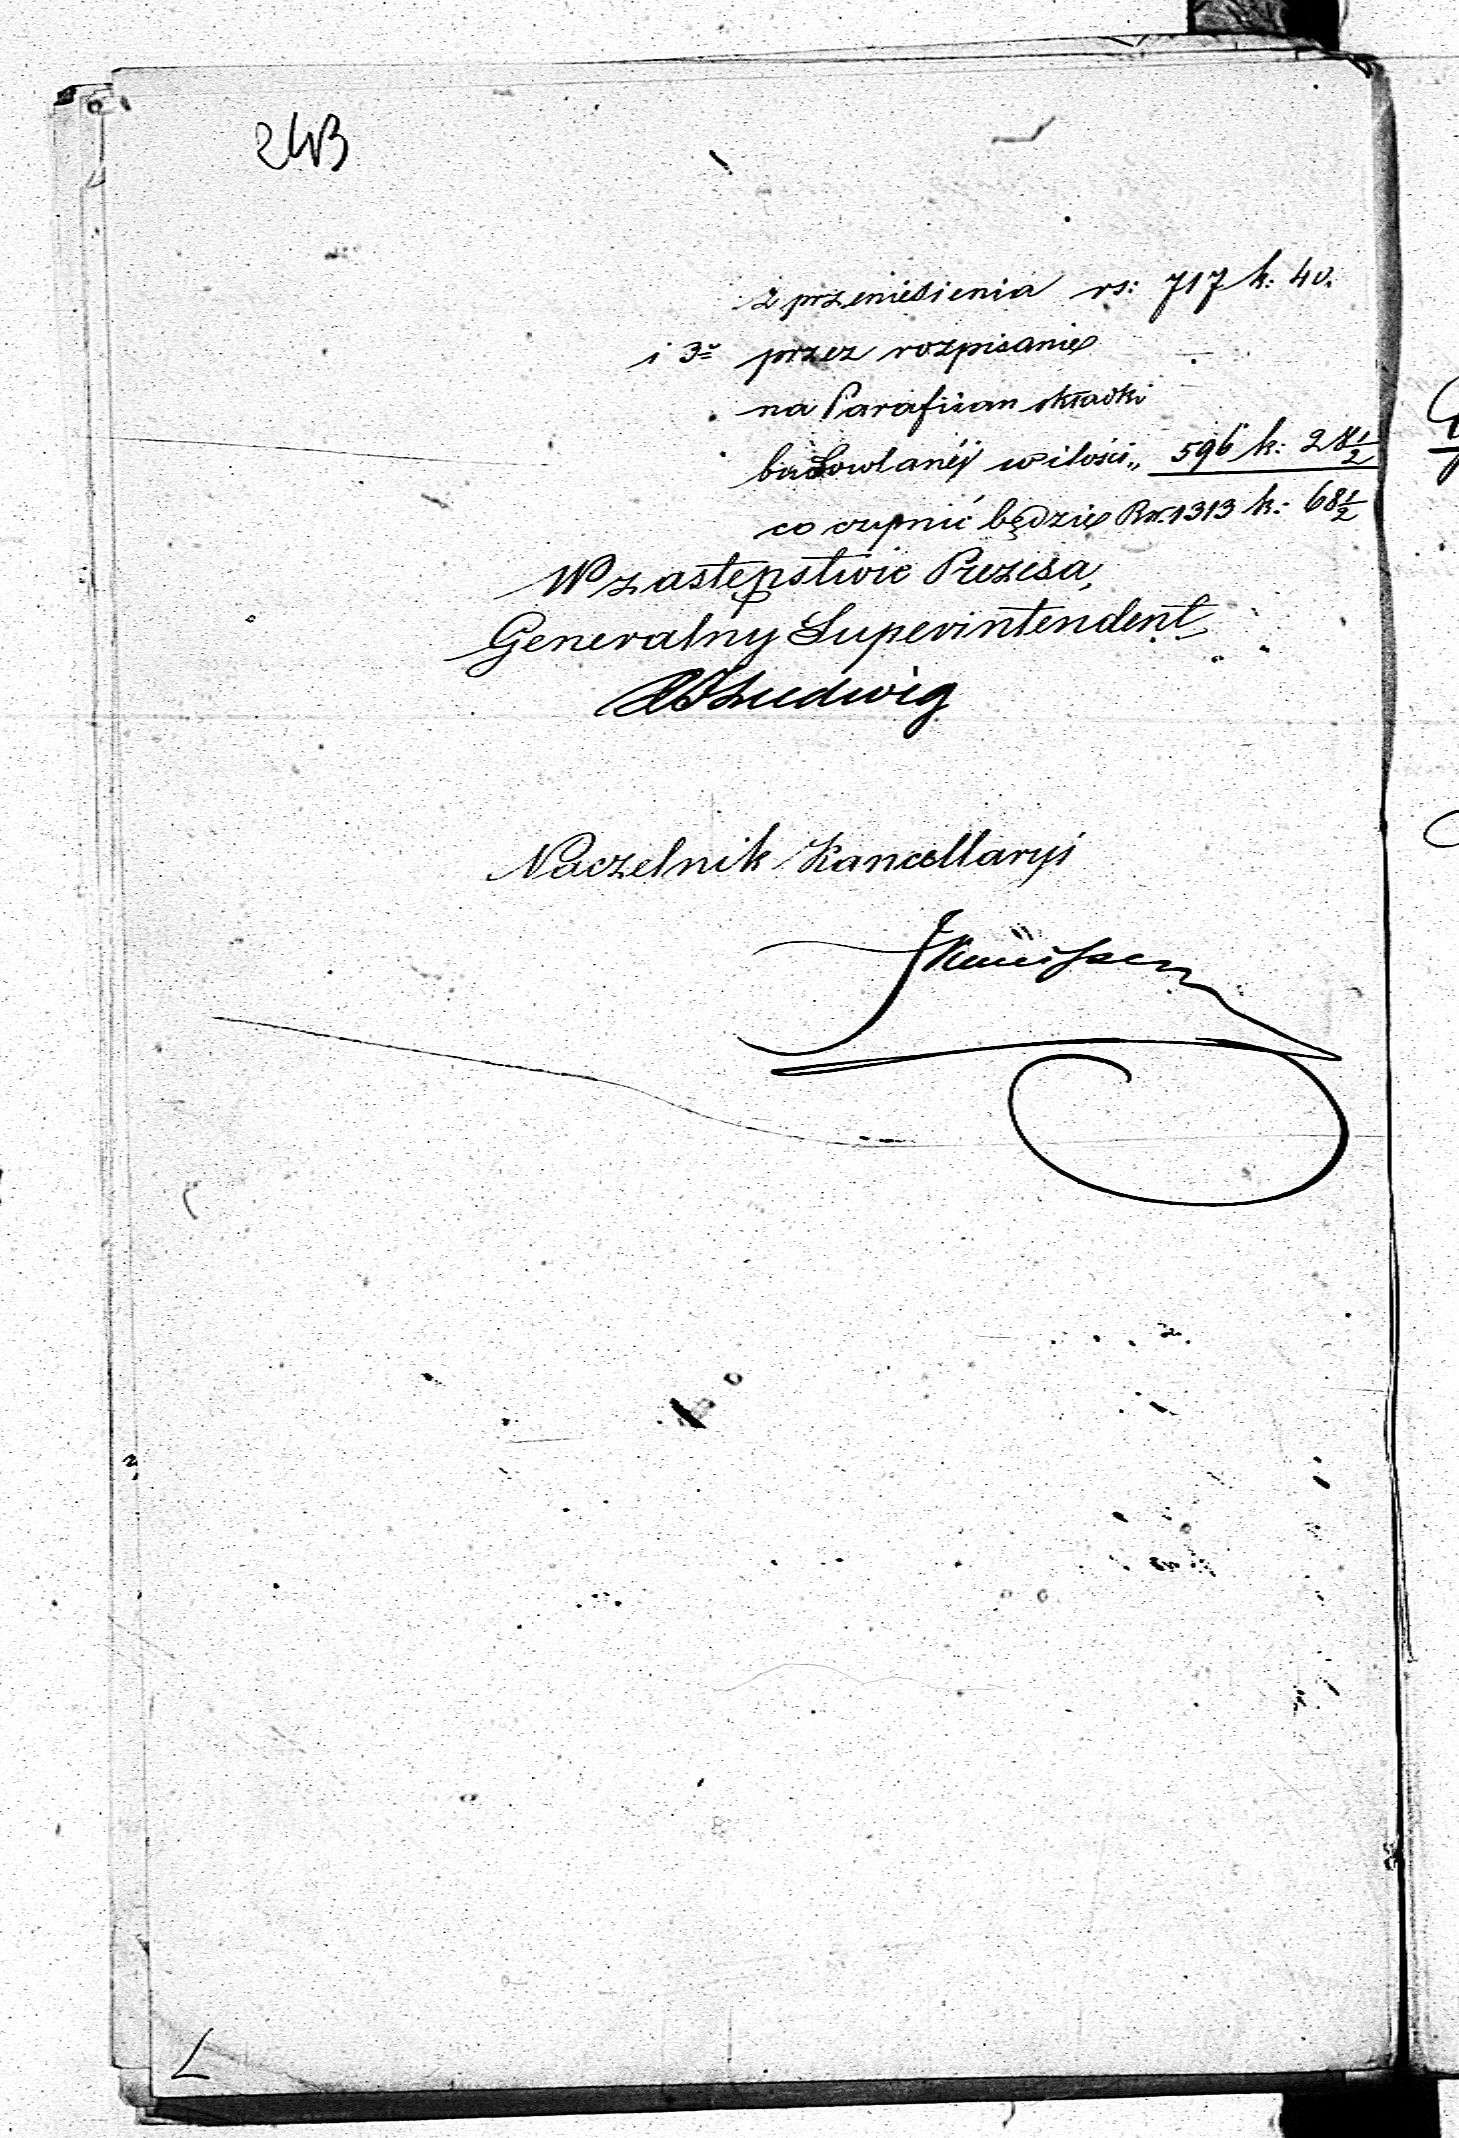 243
z przeniesienia rs: 717 k: 40.
i 3º przez rozpisanie
na Parafian składki
budowlanéj w ilości „ 596 k: 28½
co czynić będzie Rsr. 1313 k: 68½
W zastępstwie Prezesa,
Generalny Superintendent
Ludwig
Naczelnik Kancellaryi